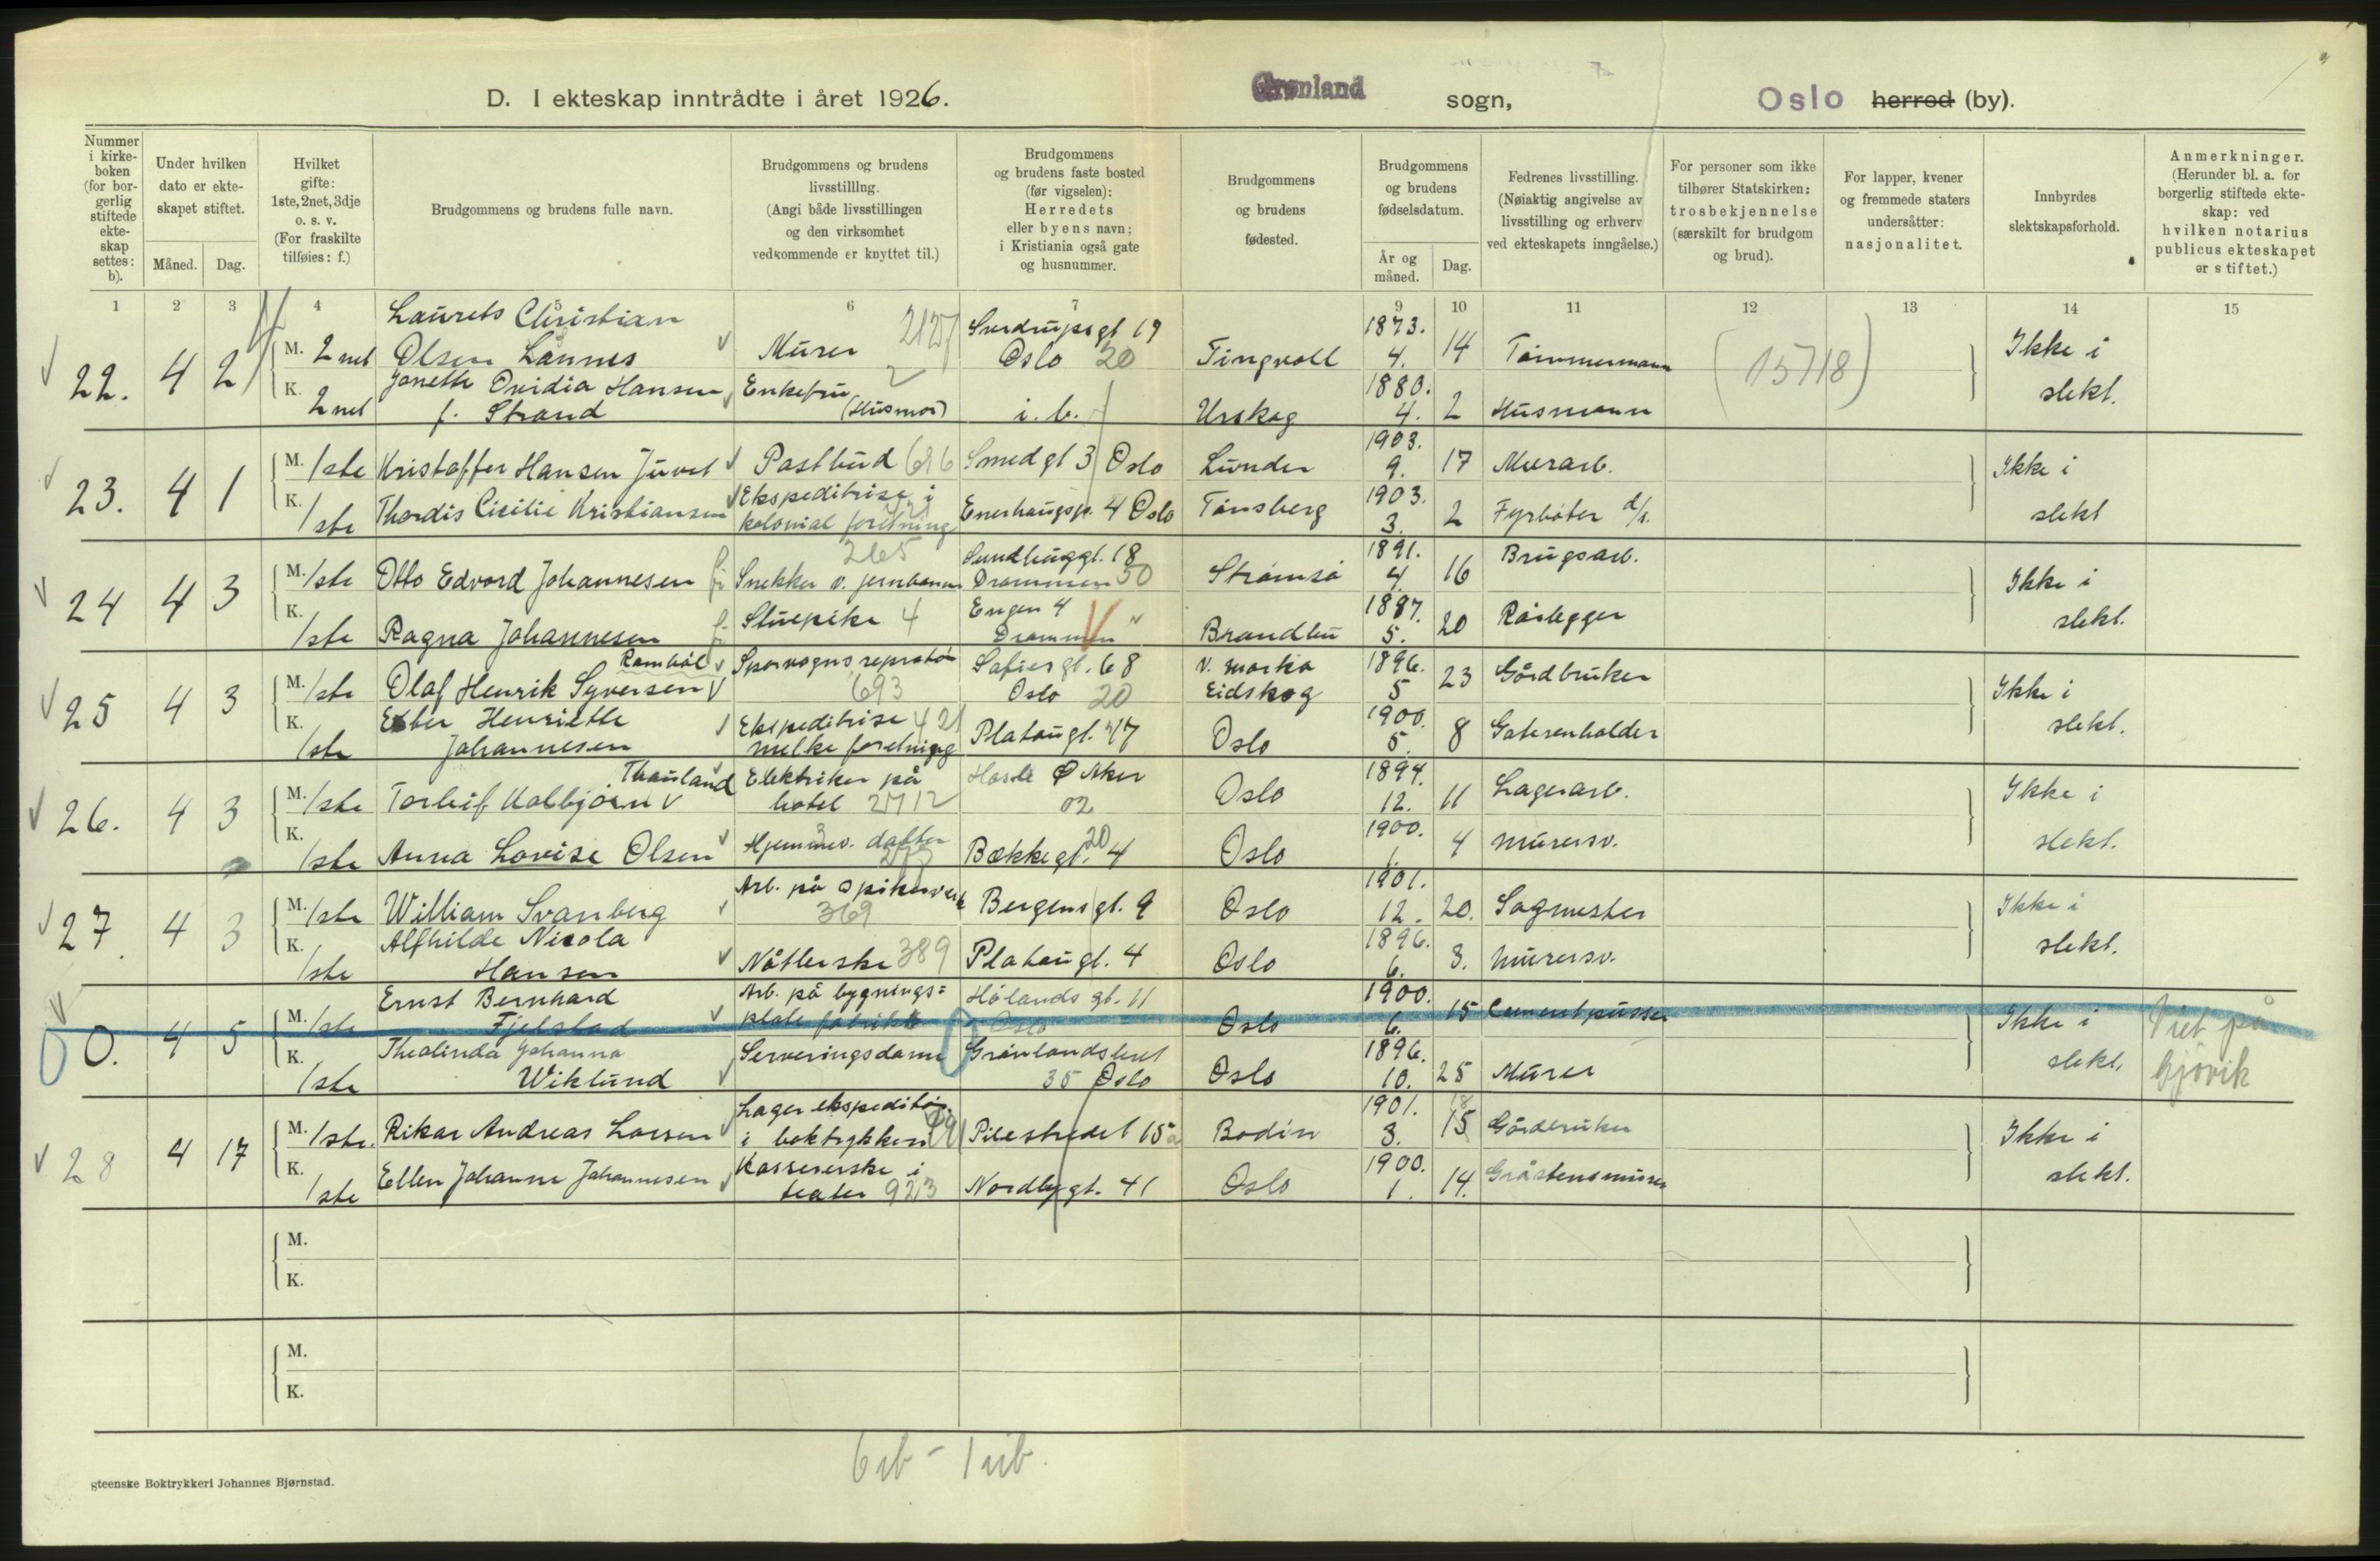 D. I ekteskap inntrådte i året 1926.
Grønland sogn,
Oslo herred (by).
Nummer i kirke- boken (for bor- gerlig stiftede ekte- skap settes: b).
Under hvilken dato er ekte- skapet stiftet.
Måned. Dag.
Hvilket gifte: 1ste, 2net, 3dje o. s. v. (For fraskilte tilføies: f.)
Brudgommens og brudens fulle navn.
Brudgommens og brudens livsstilling. (Angi både livsstillingen og den virksomhet vedkommende er knyttet til.)
Brudgommens og brudens faste bosted (før vigselen): Herredets eller byens navn; i Kristiania også gate og husnummer.
Brudgommens og brudens fødested.
Brudgommens og brudens fødselsdatum.
År og måned. Dag.
Fedrenes livsstilling. (Nøiaktig angivelse av livsstilling og erhverv ved ekteskapets inngåelse.)
For personer som ikke tilhører Statskirken: trosbekjennelse (særskilt for brudgom og brud).
For lapper, kvener og fremmede staters undersåtter: nasjonalitet.
Innbyrdes slektskapsforhold.
Anmerkninger. (Herunder bl. a. for borgerlig stiftede ekte- skap: ved hvilken notarius publicus ekteskapet er stiftet.)
1 2 3 4 5 6 7 9 10 11 12 13 14 15
22. 4 2 M. 2net Laurets Christian Olsen Lannes Murer 2127 Sverdrupsgt 19 Oslo 20 Tingvoll 1873. 4. 14 Tømmermann (15718) Ikke i slekt.
K. 2net Janette Ovidia Hansen f. Strand Enkefru (Husmor) i. b. Urskog 1880. 4. 2 Husmann
23. 4 1 M. 1ste Kristoffer Hansen Juvet Postbud 696 Smedgt 3 Oslo Lunder 1903. 9. 17 Murarb. Ikke i slekt
K. 1ste Thordis Cicilie Kristiansen Ekspeditrise i kolonial foretning Enerhaugsg. 4 Oslo Tønsberg 1903. 3. 2 Fyrbøter d/s.
24 4 3 M. 1ste Otto Edvard Johannesen Snekker v. jernbanen 265 Sundhuggt. 18 Drammen 50 Strømsø 1891. 4. 16 Brugsarb. Ikke i slekt.
K. 1ste Ragna Johannesen Stuepike 4 Engen 4 Drammen Brandbu 1887. 5. 20 Rørlegger
25 4 3 M. 1ste Olaf Henrik Syversen Ramhöl Sporvognsrepratør 693 Sofiesgt. 68 Oslo 20 V. marka Eidskog 1896. 5 23 Gårdbruker Ikke i slekt.
K. 1ste Ester Henriette Johannesen Ekspeditrise 421 melke foretning Platougt. 7 Oslo 1900. 5. 8 Gaterenholder
26. 4 3 M. 1ste Torleif Kolbjørn Thausland Elektriker på hotel 2712 Hasle Ø Aker 02 Oslo 1894. 12. 11 Lagerarb. Ikke i slekt.
K. 1ste Anna Lovise Olsen Hjemmev. datter Bækkegt. 4 20 Oslo 1900. 1. 4 Murersv.
27 4 3 M. 1ste William Svanberg Arb. på spikerverk 369 Bergensgt. 9 Oslo 1901. 12. 20. Sagmester Ikke i slekt.
K. 1ste Alfhilde Nicola Hansen Nåtlerske 389 Platougt. 4 Oslo 1896. 6. 3. Murersv.
0. 4 5 M. 1ste Ernst Bernhard Fjelstad Arb. på bygnings= plate fabrikk Hølandsgt. 11 Oslo Oslo 1900. 6. 15 Cementpusser Ikke i slekt. Viet på Gjøvik
K. 1ste Theolinda Johanna Wiklund Serveringsdame Grønlandsleret 35 Oslo Oslo 1896. 10. 25 Murer
28 4 17 M. 1ste. Rikar Andreas Larsen Lager ekspeditør i boktrykkeri Pilestredet 15a Bodin 1901. 3. 15 Gårdbruker Ikke i slekt.
K. 1ste Ellen Johanne Johannesen Kassererske i teater 923 Nordbygt. 41 Oslo 1900. 1. 14. Gråstensmurer
M.
K.
M.
K.
6 ib - 1 uib.
gteenske Boktrykkeri Johannes Bjørnstad.